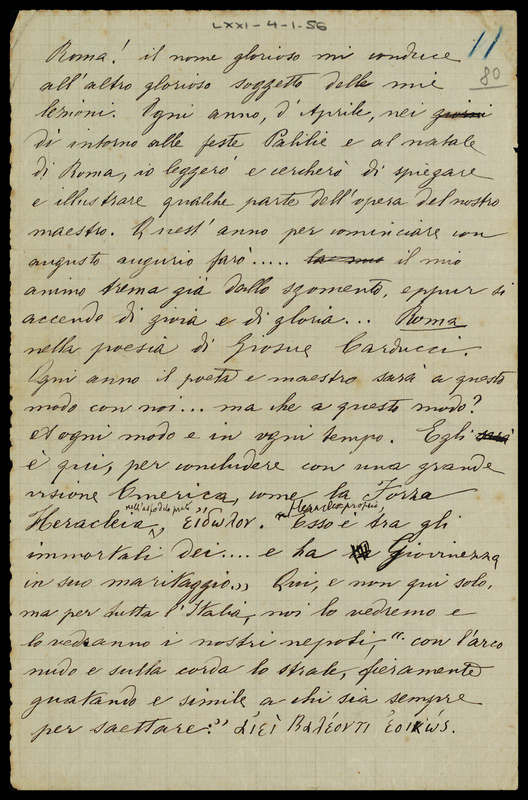 LXXI-4-1-56
11
80
Roma! il nome glorioso mi conduce
all'altro glorioso soggetto delle mie
lezioni. Ogni anno, d'Aprile, nei giorni
di intorno alle feste Palilie e al natale
di Roma, io leggerò e cercherò di spiegare
e illustrare qualche parte dell'opera del nostro
maestro. Quest'anno per cominciare con
augusto augurio farò..... la mia il mio
animo trema già dallo sgomento, eppur si
accende di gioia e di gloria... Roma
nella poesia di Giosue Carducci.
Ogni anno il poeta e maestro sarà a questo
modo con noi... ma che a questo modo?
A ogni modo e in ogni tempo. Egli sarà
è qui, per concludere con una grande
visione Omerica, come la Forza
nell'asfodelo prato Heracles proprio,
Heracleia, εἴδωλον. "Esso è tra gli
immortali dei.... e ha Giovinezza
in suo maritaggio." Qui, e non qui solo,
ma per tutta l'Italia, noi lo vedremo e
lo vedranno i nostri nepoti, "con l'arco
nudo e sulla corda lo strale, fieramente
guatando e simile a chi sia sempre
per saettare:" αἰεὶ βαλέοντι ἐοικώς.